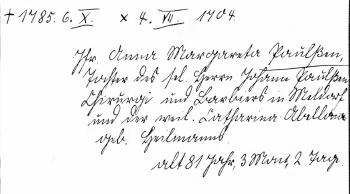 † 1785. 6. X.   × 4. VII. 1704
Jfr. Anna Margareta Paulßen,
Tochter des sel. Herrn Johann Paulßen
Chirurgi und Barbiers in Meldorf
und der weil. Catharina Abellona
geb. Heilmanns
alt 81 Jahr, 3 Mont, 2 Tage.